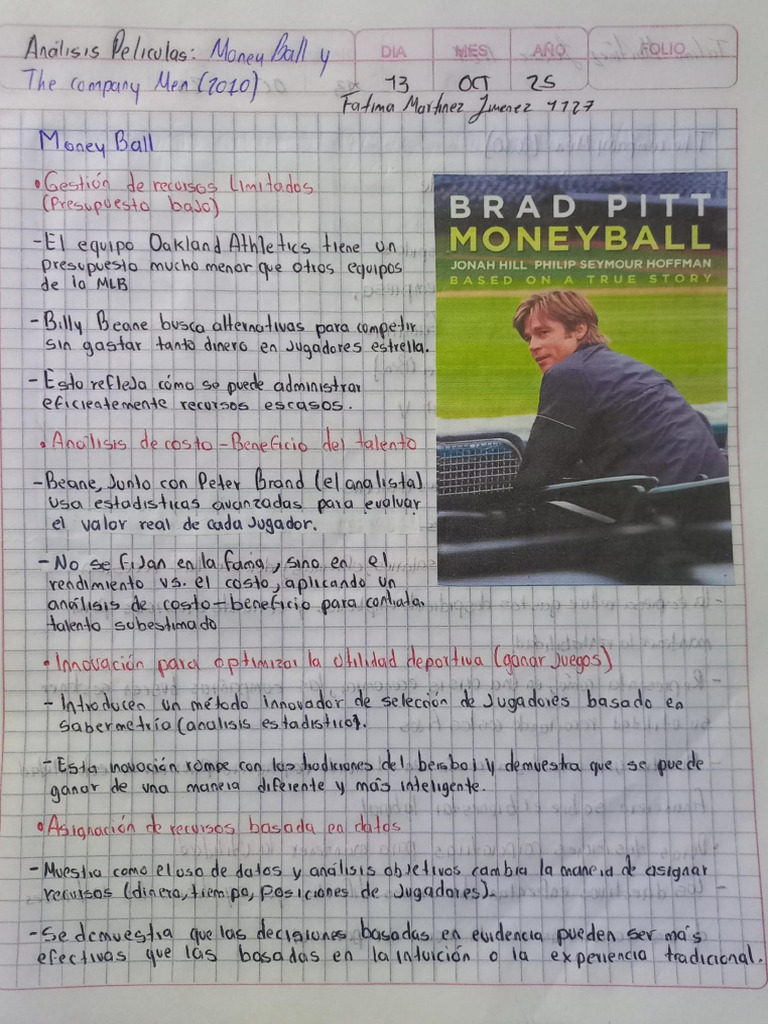 Análisis Peliculas: Money Ball y
The company Men (2010)
DIA MES AÑO FOLIO
13 OCT 25
Fatima Martinez Jimenez 1127
Money Ball
• Gestión de recursos Limitados
(Presupuesto bajo)
- El equipo Oakland Athletics tiene un
presupuesto mucho menor que otros equipos
de la MLB
- Billy Beane busca alternativas para competir
sin gastar tanto dinero en jugadores estrella.
- Esto refleja cómo se puede administrar
eficientemente recursos escasos.
• Análisis de costo - Beneficio del talento
- Beane, junto con Peter Brand (el analista)
usa estadisticas avanzadas para evaluar
el valor real de cada jugador.
- No se fijan en la fama, sino en el
rendimiento vs. el costo, aplicando un
análisis de costo - beneficio para contratar
talento subestimado
BRAD PITT
MONEYBALL
JONAH HILL PHILIP SEYMOUR HOFFMAN
BASED ON A TRUE STORY
• Innovación para optimizar la utilidad deportiva (ganar juegos)
- Introducen un método innovador de selección de jugadores basado en
sabermetría (analisis estadistico).
- Esta inovación rompe con las tradiciones del beisbol y demuestra que se puede
ganar de una manera diferente y más inteligente.
• Asignación de recursos basada en datos
- Muestra como el uso de datos y análisis objetivos cambia la manera de asignar
recursos (dinero, tiempo, posiciones de jugadores).
- Se demuestra que las decisiones basadas en evidencia pueden ser más
efectivas que las basadas en la intuición o la experiencia tradicional.